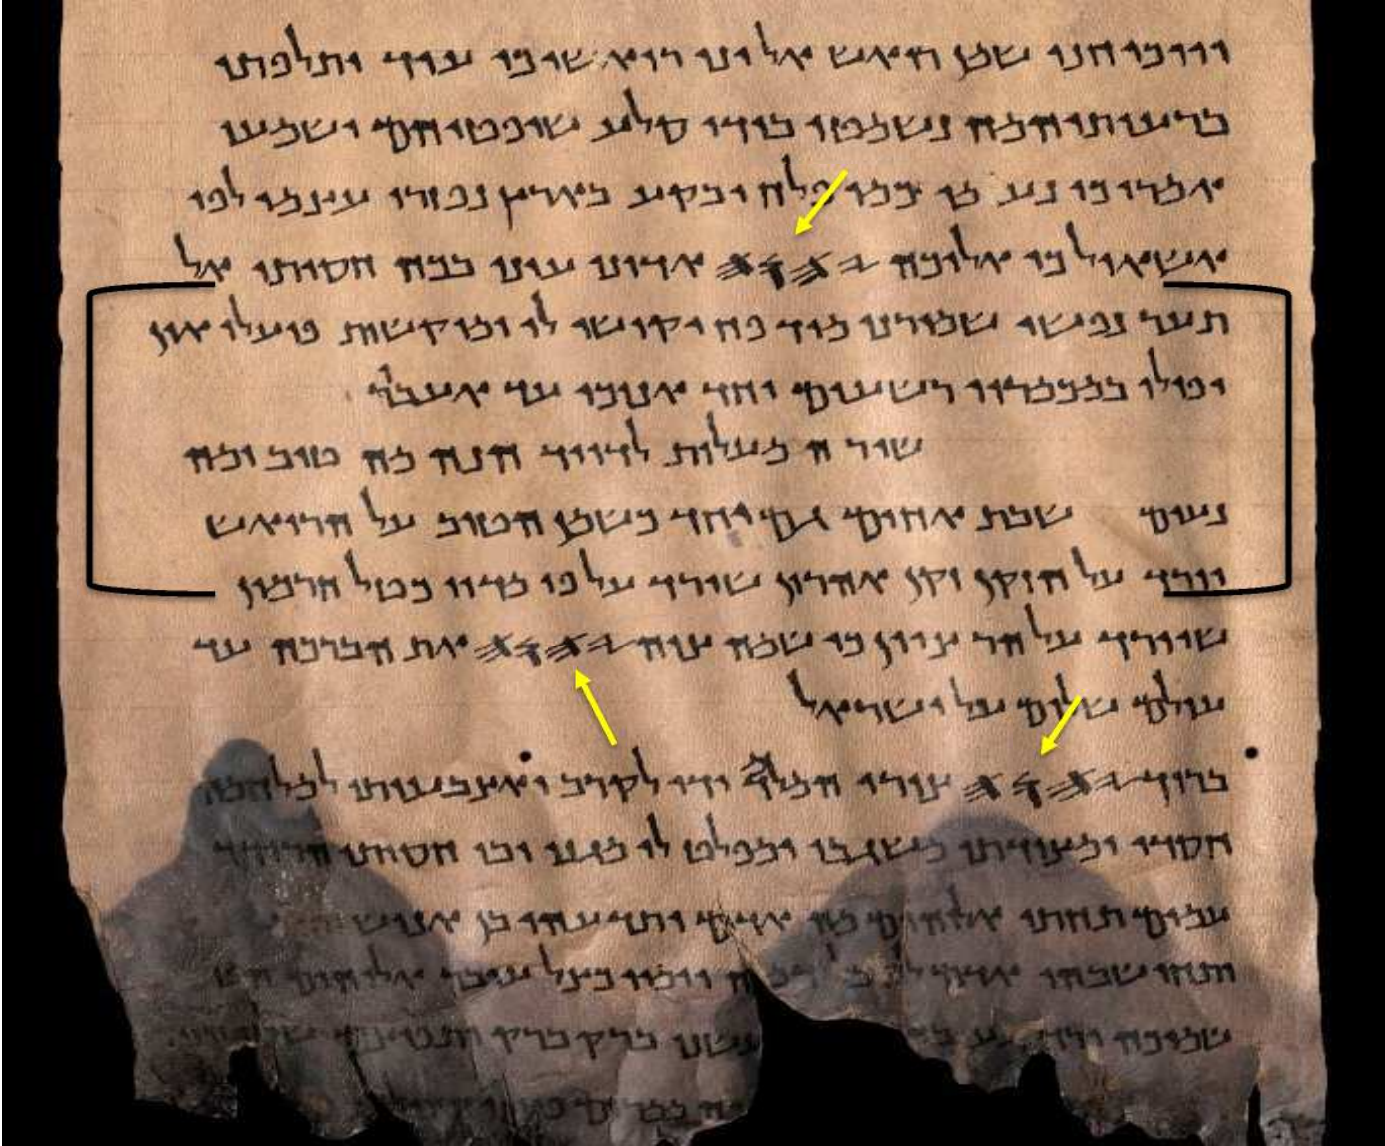 ויוכיחני שמן רואש אל יני רואשי כי עוד ותלפתי
ברעותיהמה נשמטו בידי סלע שופטיהם ושמעו
אמרי כי נעמו כמו פלח ובקע בארץ נפזרו עצמי לפי
שאול כי אליכה 𐤉𐤄𐤅𐤄 אדוני עיני בכה חסיתי אל
תער נפשי שמורני מיד פח יקושי לי ומוקשות פועלי און
יפולו במכמריו רשעים יחד אנוכי עד אעבר
שיר המעלות לדויד הנה מה טוב ומה
נעים שבת אחים גם יחד כשמן הטוב על הרואש
יורד על הזקן זקן אהרון שירד על פי מדיו כטל חרמון
שיורד על הר ציון כי שמה צוה 𐤉𐤄𐤅𐤄 את הברכה עד
עולם שלום על ישראל
ברוך 𐤉𐤄𐤅𐤄 צורי המלמד ידי לקרב ואצבעותי למלחמה
חסדי ומצודתי משגבי ומפלט לי מגני ובו חסיתי הרודד
עמים תחתי אלוהים מה אדם ותדעהו בן אנוש
ותחשבהו אדם וימיו כצל עובר אלוהים
שמיכה ברק ברק